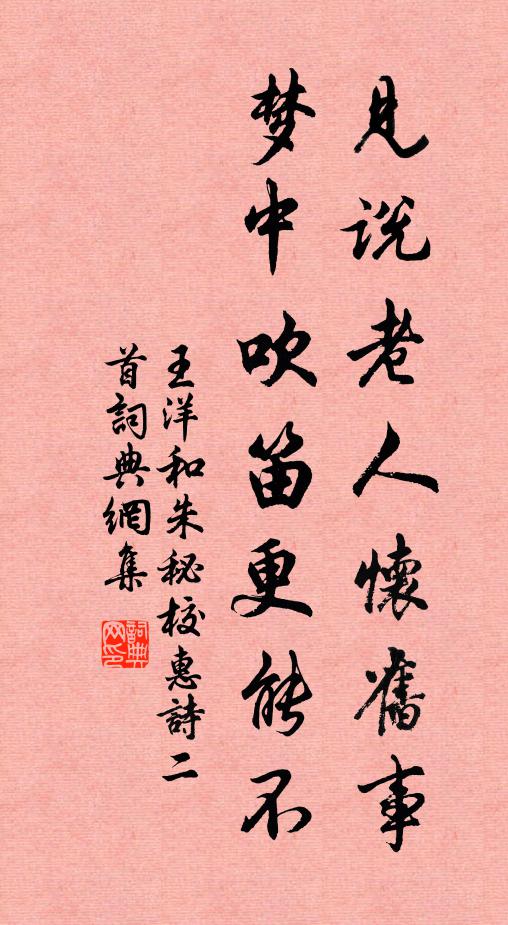 見説老人懷舊事
梦中吹笛更能不
王洋和朱秘校惠詩二
首詞典網集
詞典
网印